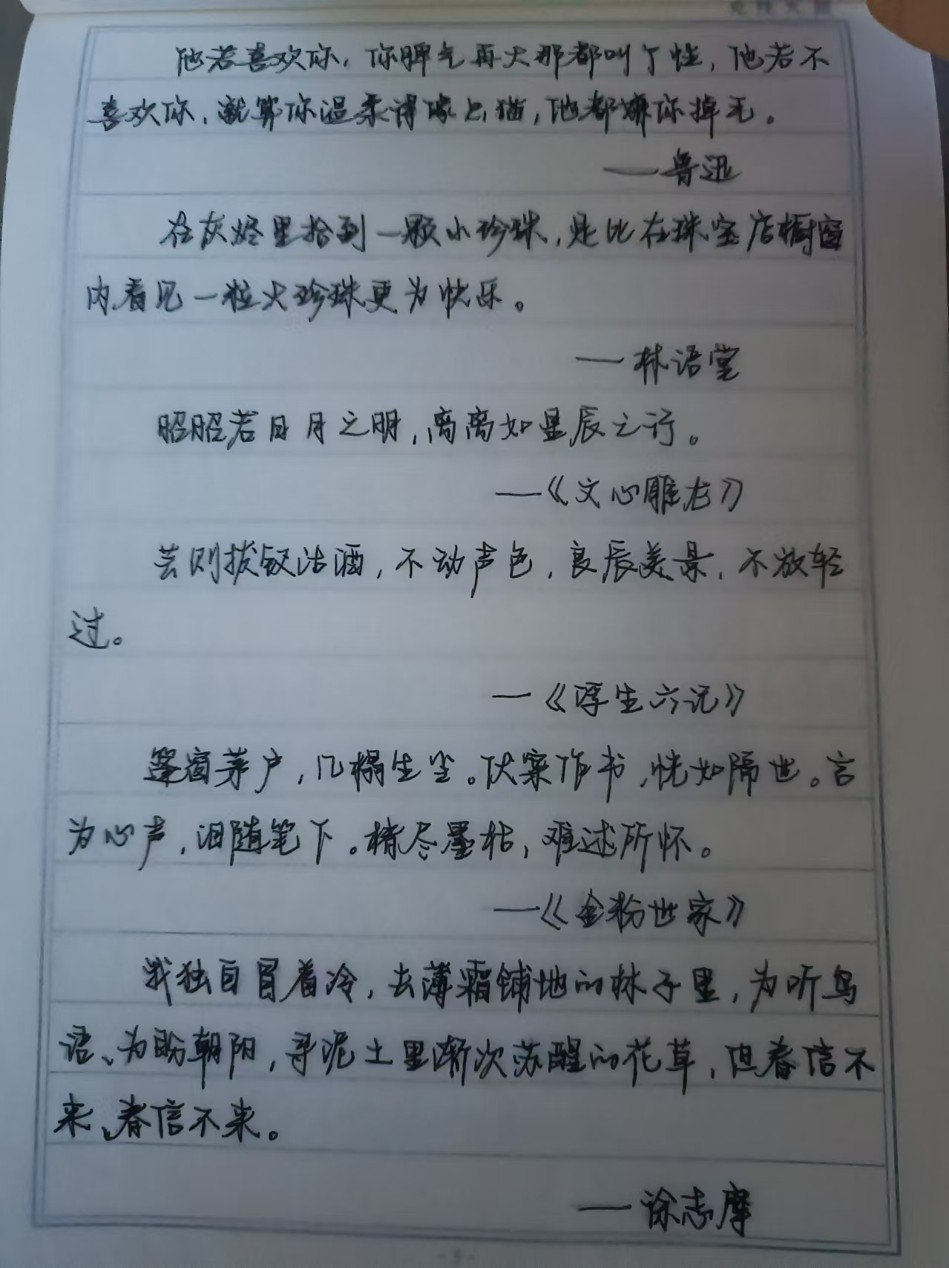 他若喜欢你，你脾气再大那都叫个性，他若不
喜欢你，就算你温柔得像只猫，他都嫌你掉毛。
——鲁迅
在灰烬里拾到一颗小珍珠，是比在珠宝店橱窗
内看见一粒大珍珠更为快乐。
——林语堂
昭昭若日月之明，离离如星辰之行。
——《文心雕龙》
芸则拔钗沽酒，不动声色，良辰美景，不放轻
过。
——《浮生六记》
篷窗茅户，几榻生尘。伏案作书，恍如隔世。言
为心声，泪随笔下。楮尽墨枯，难述所怀。
——《金粉世家》
我独自冒着冷，去薄霜铺地的林子里，为听鸟
语、为盼朝阳，寻泥土里渐次苏醒的花草，但春信不
来、春信不来。
——徐志摩
-5-